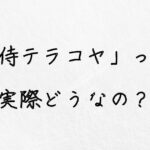 侍テラコヤ」っ
実際どうなの？